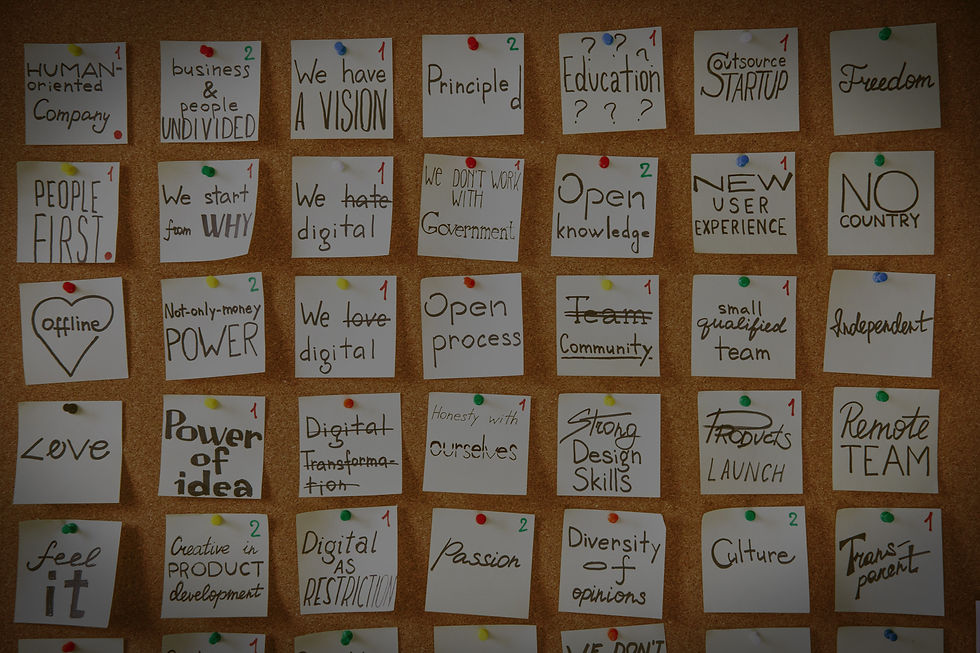 1
HUMAN-
oriented
Company
2
business
&
people
UNDIVIDED
1
We have
A VISION
2
Principled
1
? ? ?
Education
? ? ?
1
Outsource
STARTUP
Freedom
1
PEOPLE
FIRST
1
We start
from WHY
1
We hate
digital
1
WE DON'T WORK
WITH
Government
2
Open
knowledge
1
NEW
USER
EXPERIENCE
NO
COUNTRY
offline
2
Not-only-money
POWER
1
We love
digital
Open
process
1
Team
Community
1
small
qualified
team
Independent
Love
1
Power
of
idea
Digital
Transforma-
tion
1
Honesty with
ourselves
Strong
Design
Skills
1
Products
LAUNCH
Remote
TEAM
feel
it
2
Creative in
PRODUCT
development
1
Digital
AS
RESTRICTION
2
Passion
Diversity
of
opinions
2
Culture
1
Trans-
parent
2
1
WE DON'T